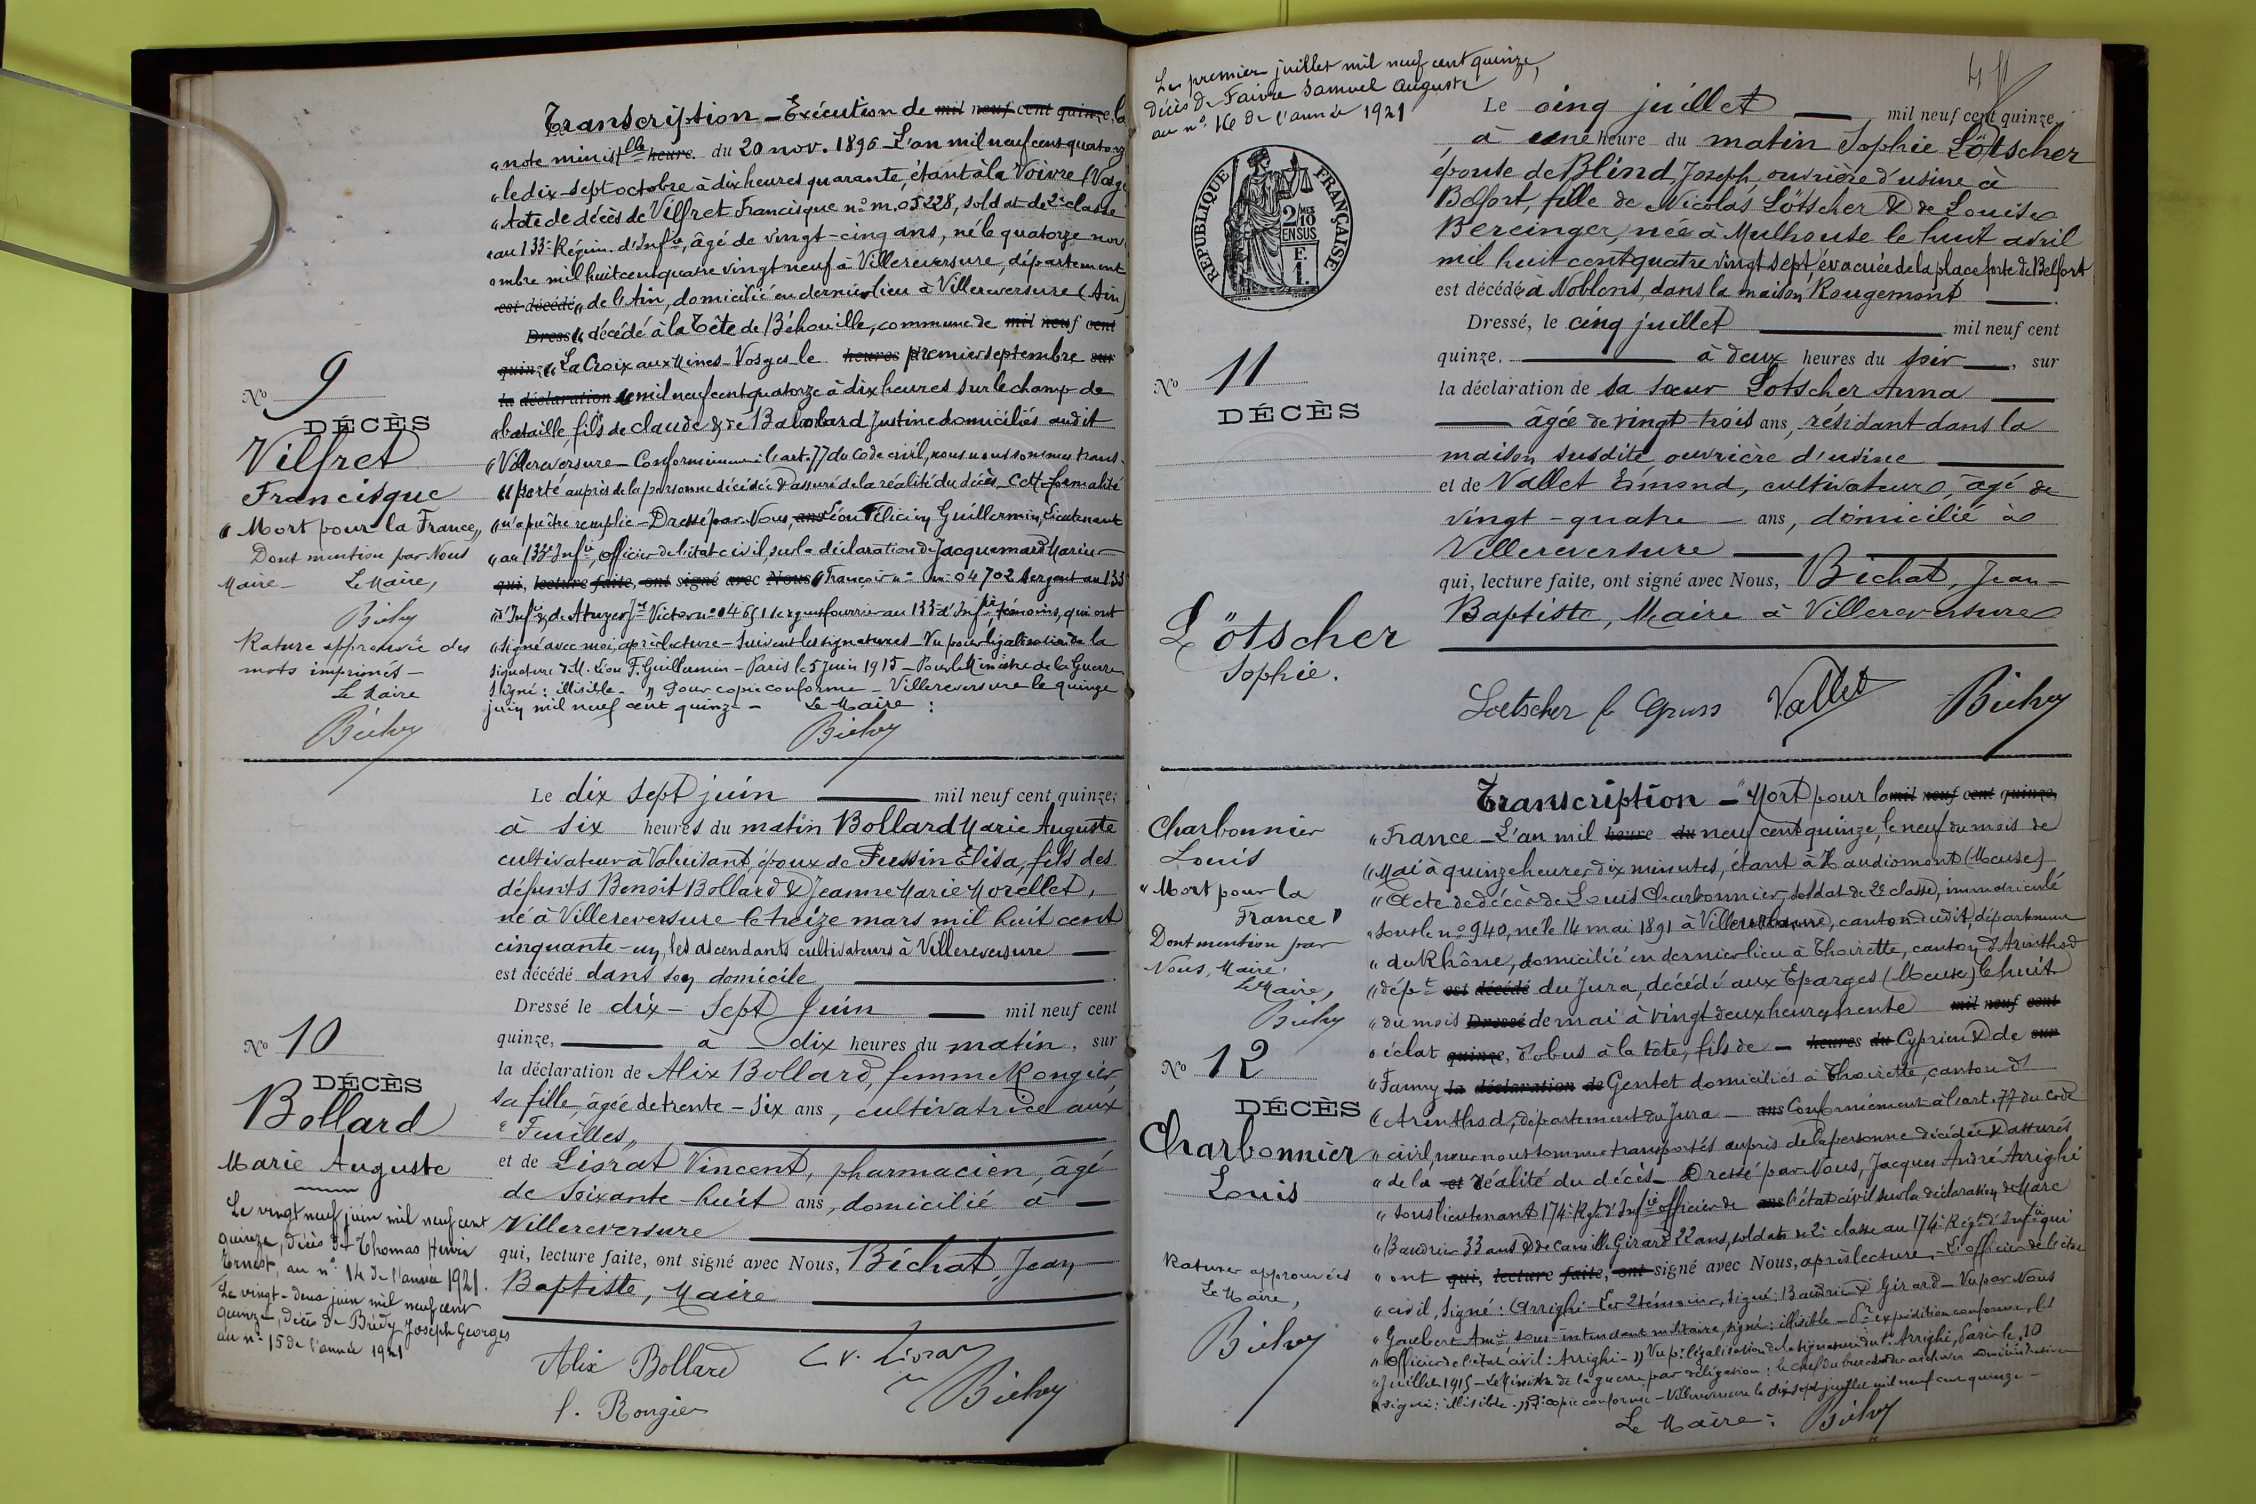 Transcription - Exécution de mil neuf cent quinze, la
"note minist^lle heure. du 20 nov. 1896 - L'an mil neuf cent quatorz
"le dix-sept octobre à dix heures quarante, étant à la Voivre (Vosg
"Acte de décès de Vilfret Francisque n° m. 05228, soldat de 2e classe
"au 133e Régim. d'Inf^ie, âgé de vingt-cinq ans, né le quatorze nov
embre mil huit cent quatre vingt neuf à Villereversure, département
est décédé "de l'Ain, domicilié en dernier lieu à Villereversure (Ain)
Dressé "décédé à la Tête de Béhouille, commune de mil neuf cent
quinze "La Croix aux Mines - Vosges le heures premier septembre sur
la déclaration de mil neuf cent quatorze à dix heures sur le champ de
"bataille, fils de Claude & de Justine domiciliés audit
"Villereversure - Conformément à l'art. 77 du Code civil, nous nous sommes trans-
"porté auprès de la personne décédée & assuré de la réalité du décès. Cette formalité
"n'a pu être remplie - Dressé par Nous, ans Léon Félicien Guillermin, Lieutenant
"au 133e Inf^ie, officier de l'état civil, sur la déclaration de Jacquemard Marius
qui, lecture faite, ont signé avec Nous "François n° m. 04702 sergent au 133
d'Inf^ie & de Victor n° 04651 sergent fourrier au 133 d'Inf^ie, témoins, qui ont
"signé avec moi, après lecture - Suivent les signatures - Vu pour légalisation de la
signature de M. Léon F. Guillermin - Paris le 5 Juin 1915 - Pour le Ministre de la Guerre
signé : illisible - " Pour copie conforme - Villereversure le quinze
juin mil neuf cent quinze - Le Maire :
Bichat
No 9
DÉCÈS
Vilfret
Francisque
"Mort pour la France"
Dont mention par Nous
Maire - Le Maire,
Bichat
Rature approuvée des
mots imprimés -
Le Maire
Bichat
Le dix sept juin mil neuf cent quinze,
à six heures du matin Bollard Marie Auguste
cultivateur à époux de Élisa, fils des
défunts Benoît Bollard & Jeanne Marie Morellet,
né à Villereversure le treize mars mil huit cent
cinquante-un, les ascendants cultivateurs à Villereversure
est décédé dans son domicile
Dressé le dix-sept Juin mil neuf cent
quinze, à dix heures du matin, sur
la déclaration de Alix Bollard, femme Rongier,
sa fille, âgée de trente-six ans, cultivatrice aux
"Feuilles"
et de Livrat Vincent, pharmacien, âgé
de soixante-huit ans, domicilié à
Villereversure
qui, lecture faite, ont signé avec Nous, Béchat, Jean-
Baptiste, Maire
Alix Bollard
f. Rongier
V. Livrat
Bichat
No 10
DÉCÈS
Bollard
Marie Auguste
Le vingt neuf juin mil neuf cent
quinze, décès de Thomas Henri
Ernest, au n° 14 de l'année 1921.
Le vingt-deux juin mil neuf cent
quinze, décès de Brédy Joseph Georges
au n° 15 de l'année 1921
Le premier juillet mil neuf cent quinze,
décès de Faivre Samuel Auguste
au n° 16 de l'année 1921
RÉPUBLIQUE FRANÇAISE
2/10 MES
EN SUS
F.
1.
Le cinq juillet mil neuf cent quinze,
à une heure du matin Sophie Lötscher
épouse de Blind Joseph, ouvrière d'usine à
Belfort, fille de Nicolas Lötscher & de Louise
Bereinger, née à Mulhouse le huit avril
mil huit cent quatre vingt sept, évacuée de la place forte de Belfort
est décédée à Noblens, dans la maison Rougemont
Dressé, le cinq juillet mil neuf cent
quinze, à deux heures du soir, sur
la déclaration de sa sœur Lotscher Anna
âgée de vingt-trois ans, résidant dans la
maison susdite ouvrière d'usine
et de Vallet Emond, cultivateur, âgé de
vingt-quatre ans, domicilié à
Villereversure
qui, lecture faite, ont signé avec Nous, Béchat, Jean-
Baptiste, Maire à Villereversure
Loetscher Vallet Bichat
No 11
DÉCÈS
Lötscher
Sophie.
Transcription - "Mort pour la mil neuf cent quinze,
"France - L'an mil heure du neuf cent quinze, le neuf du mois de
"Mai à quinze heures dix minutes, étant à Haudiomont (Meuse)
"Acte de décès de Louis Charbonnier, soldat de 2e classe, immatriculé
"sous le n° 940, né le 14 mai 1891 à Villeurbanne, canton dudit, département
"du Rhône, domicilié en dernier lieu à Thoirette, canton d'Arinthod
"dép^t est décédé du Jura, décédé aux Eparges (Meuse) le huit
"du mois Dressé de mai à vingt deux heures trente mil neuf cent
"éclat quinze, d'obus à la tête, fils de - heures du Cyprien & de sur
"Fanny la déclaration de Gentet domiciliés à Thoirette, canton d'
"Arinthod, département du Jura - ans Conformément à l'art. 77 du Code
"civil, nous nous sommes transportés auprès de la personne décédée & assurés
"de la et réalité du décès - Dressé par Nous, Jacques André Arrighi
"sous lieutenant 174e Rgt d'Inf^ie officier de ans l'état civil sur la déclaration de Marc
"Baudrier 33 ans & de Camille Girard 22 ans, soldats de 2e classe au 174e Régt d'Inf^ie qui
"ont qui, lecture faite, ont signé avec Nous, après lecture - L'officier de l'état
"civil, signé : Arrighi - Les 2 témoins, signé : Baudrier & Girard - Vu par Nous
"Gaubert sous-intendant militaire, signé : illisible - P^r expédition conforme, l'
"officier de l'état civil : Arrighi - " Vu p^r légalisation de la signature du Lt Arrighi, Paris le 10
"Juillet 1915 - Le Ministre de la guerre par délégation : le chef du bureau des archives administratives
"signé : illisible - " P^r copie conforme - Villereversure le dix sept juillet mil neuf cent quinze -
Le Maire : Bichat
Charbonnier
Louis
"Mort pour la
France"
Dont mention par
Nous, Maire.
Le Maire,
Bichat
No 12
DÉCÈS
Charbonnier
Louis
Ratures approuvées
Le Maire,
Bichat